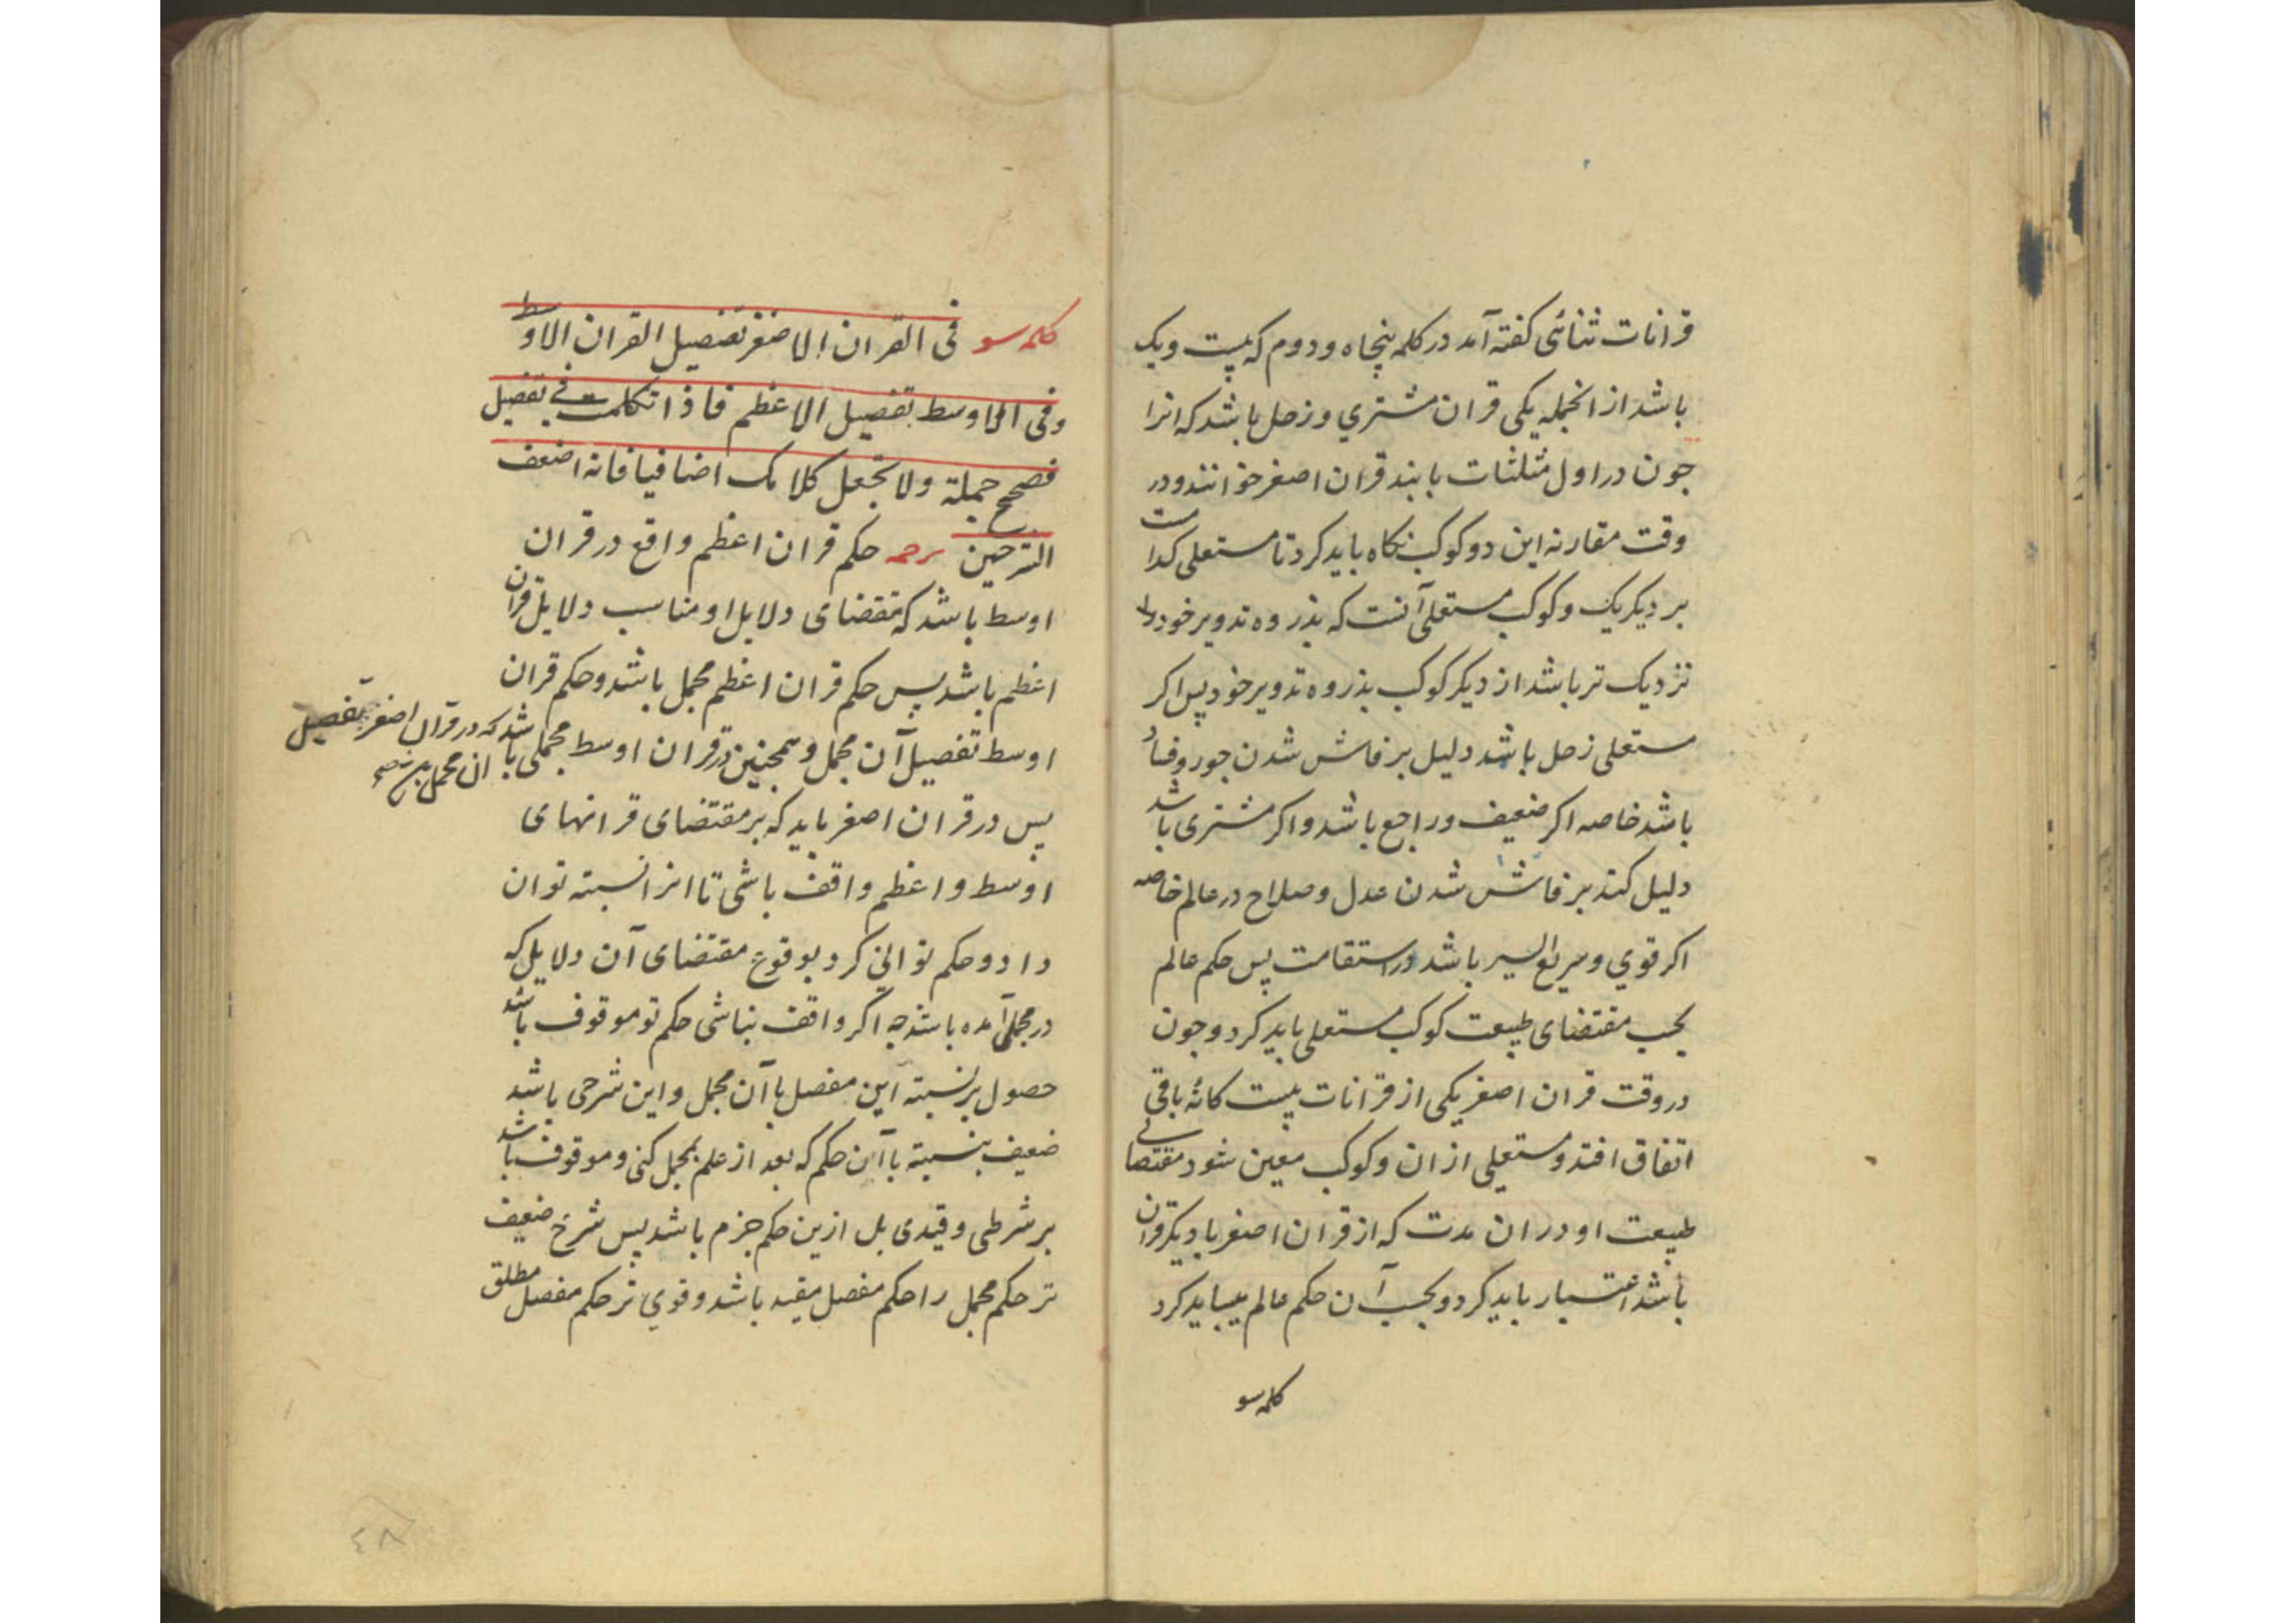 قرانات ثنائی کفته آمد در کلمه پنجاه و دوم که بیست و یک
باشد از انجمله یکی قران مشتري و زحل باشد که انرا
جون در اول مثلثات یابند قران اصغر خوانند و در
وقت مقارنه این دو کوکب نکاه باید کرد تا مستعلی کدامست
بر دیکریک و کوکب مستعلی آنست که بذروه تدویر خود
نزدیک تر باشد از دیکر کوکب بذروه تدویر خود پس اکر
مستعلی زحل باشد دلیل بر فاش شدن جور و فساد
باشد خاصه اکر ضعیف و راجع باشد و اکر مشتری باشد
دلیل کند بر فاش شدن عدل و صلاح در عالم خاصه
اکر قوي و سریع السیر باشد در استقامت پس حکم عالم
بحسب مقتضای طبیعت کوکب مستعلی باید کرد و جون
در وقت قران اصغر یکی از قرانات بیست کانه باقی
اتفاق افتد و مستعلی از ان و کوکب معین شود مقتضای
طبیعت او در ان مدت که از قران اصغر با دیکر قران
باشد اعتبار باید کرد و بحسب آن حکم عالم میباید کرد
کلمه سو
کلمه سو فی القران الاصغر تفصیل القران الاوسط
وفی الاوسط تفصیل الاعظم فاذا تکلمت فی تفصیل
فصحح جملة ولا تجعل کلامک اضافیا فانه اضعف
الشرحین حکم قران اعظم واقع در قران
اوسط باشد که مقتضای دلایل او مناسب دلایل قران
اعظم باشد پس حکم قران اعظم مجمل باشد و حکم قران
اوسط تفصیل آن مجمل و همجنین در قران اوسط مجملی باشد که در قران اصغر تفصیل
ان مجمل
پس در قران اصغر باید که بر مقتضای قرانهای
اوسط و اعظم واقف باشی تا انرا نسبته توان
داد و حکم توانی کرد بوقوع مقتضای آن دلایل که
در مجمل آمده باشد جه اکر واقف نباشی حکم تو موقوف باشد
حصول بر نسبته این مفصل با آن مجمل و این شرحی باشد
ضعیف بنسبته با آن حکم که بعد از علم بمجمل کنی و موقوف باشد
بر شرطی و قیدی بل ازین حکم جزم باشد پس شرح ضعیف
تر حکم مجمل را حکم مفصل مقید باشد و قوي تر حکم مفصل مطلق
٤٨